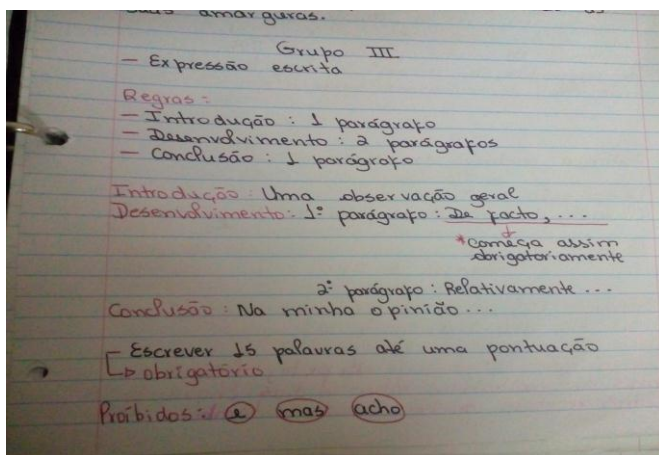 amarguras.
Grupo III
- Expressão escrita
Regras:
- Introdução: 1 parágrafo
- Desenvolvimento: 2 parágrafos
- Conclusão: 1 parágrafo
Introdução: Uma observação geral
Desenvolvimento: 1º parágrafo: De facto, ...
*começa assim
obrigatoriamente
2º parágrafo: Relativamente ...
Conclusão: Na minha opinião ...
- Escrever 15 palavras até uma pontuação
obrigatório
Proibidos: e mas acho